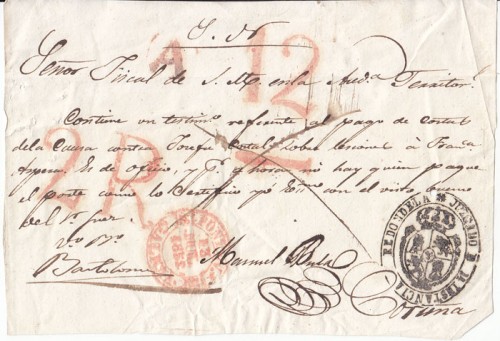 S. N.
A 12
Señor Fiscal de S. M. en la Aud.ª Territor.
Contiene un testim.º referente al pago de costas
de la Causa contra Josefa sobre lesiones à Fran.ca
Es de oficio, y p.r ahora no hay quien pague
2 R.
el porte como lo Certifico yo Es.no con el visto bueno
del S.r Juez.
V.to B.no
Bartolomé
Manuel
JUZGADO DE 1ª INSTANCIA
REDONDELA
Coruña